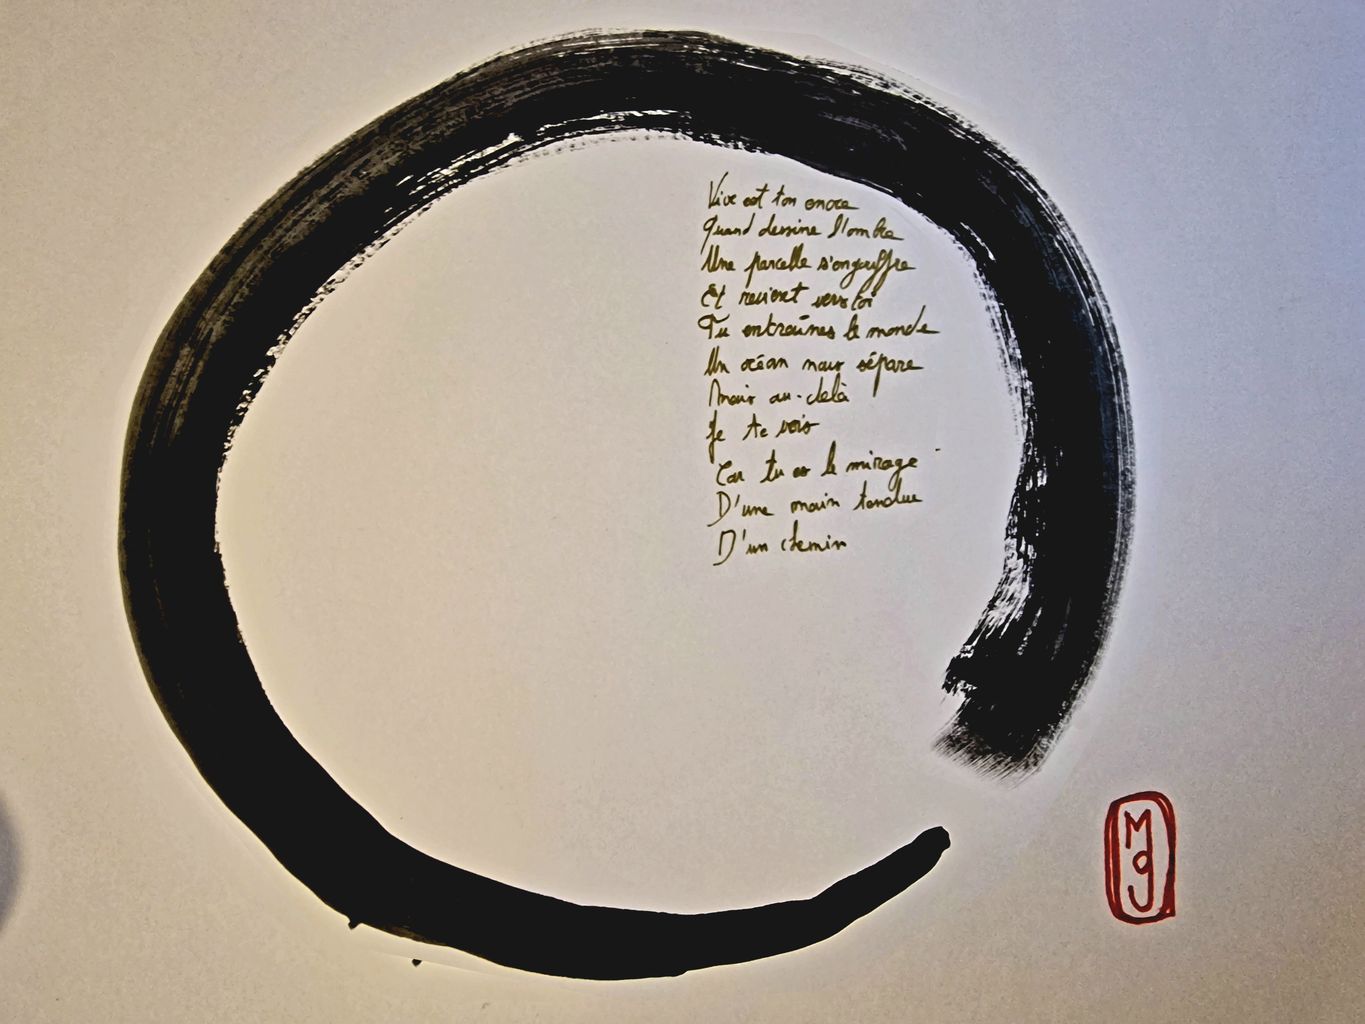 Vive est ton encre
Quand dessine l'ombre
Une parcelle s'engouffre
Et revient vers toi
Tu entraînes le monde
Un océan nous sépare
Mais au-delà
Je te vois
Car tu es le mirage
D'une main tendue
D'un chemin
Mg